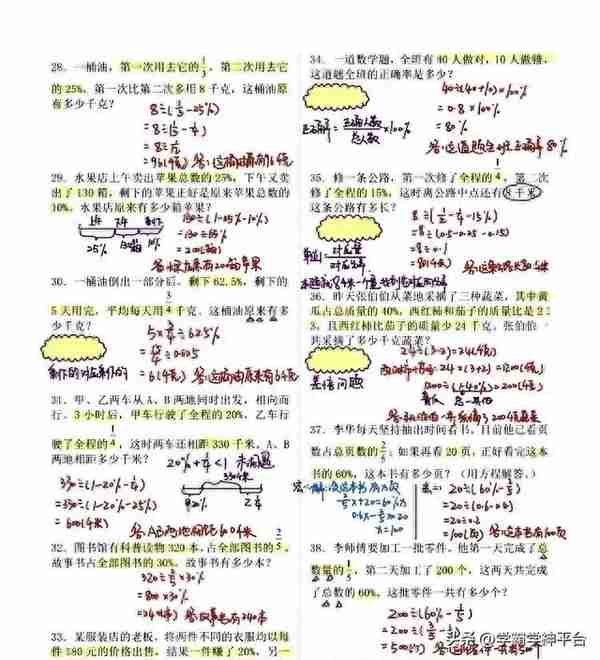 28、一桶油，第一次用去它的1/3，第二次用去它
的25%。第一次比第二次多用8千克，这桶油原
有多少千克？
8÷(1/3-25%)
=8÷(1/3-1/4)
=8÷1/12
=96(千克)
29、水果店上午卖出苹果总数的25%，下午又卖
出了130箱，剩下的苹果正好是原来苹果总数的
10%。水果店原来有多少箱苹果？
130÷(1-25%-10%)
=130÷65%
=200(箱)
25% 130箱 10%
30、一桶油倒出一部分后，剩下62.5%，剩下的
5天用完，平均每天用3/4千克。这桶油原来有多
少千克？
5×3/4÷62.5%
=15/4÷0.625
=6(千克)
31、甲、乙两车从A、B两地同时出发，相向而
行。3小时后，甲车行驶了全程的20%，乙车行
驶了全程的1/4，这时两车还相距330千米。A、B
两地相距多少千米？
20%+1/4<1 未相遇
330千米
330÷(1-20%-1/4)
=330÷(1-20%-25%)
=600(千米)
答：A、B两地相距600千米
32、图书馆有科普读物320本，占全部图书的2/5，
故事书占全部图书的30%。故事书有多少本？
320÷2/5×30%
=800×30%
=240(本)
答：故事书有240本
33、某服装店的老板，将两件不同的衣服均以每
件580元的价格出售，结果一件赚了20%，另一
34、一道数学题，全班有40人做对，10人做错，
这道题全班的正确率是多少？
40÷(40+10)×100%
=0.8×100%
=80%
正确率=正确人数/总人数×100%
35、修一条公路，第一次修了全程的1/4，第二次
修了全程的15%，这时离公路中点还有8千米，
这条公路有多长？
8÷(1/2-1/4-15%)
=8÷(0.5-0.25-0.15)
=8÷0.1
=80(千米)
36、昨天张伯伯从菜地采摘了三种蔬菜，其中黄
瓜占总质量的40%，西红柿和茄子的质量比是2:
3，且西红柿比茄子的质量少24千克。张伯伯一
共采摘了多少千克蔬菜？
24÷(3-2)=24(千克)
差倍问题
37、李华每天坚持抽出时间看书，目前他已看页
数占总页数的2/5；如果再看20页，正好看完这本
书的60%，这本书有多少页？（用方程解答。）
2/5x+20=60%x
0.6x-2/5x=20
x=100
20÷(60%-2/5)
=20÷(0.6-0.4)
=20÷0.2
=100(页)
38、李师傅要加工一批零件，他第一天完成了总
数量的1/5，第二天加工了200个，这两天共完成
了总数的60%，这批零件一共有多少个？
200÷(60%-1/5)
=500(个)
头条@学霸学神平台